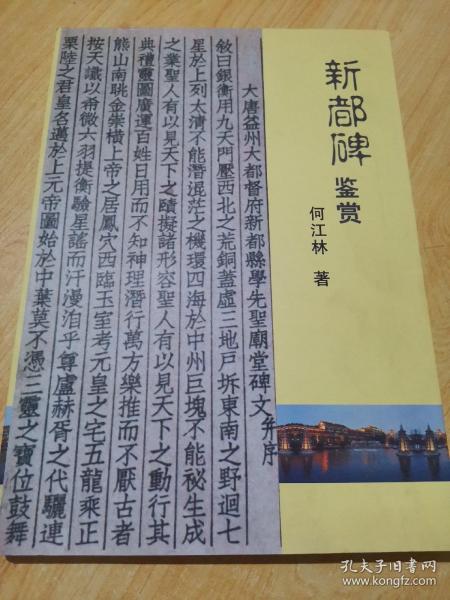 新都碑
鉴赏
何江林 著
大唐益州大都督府新都縣學先聖廟堂碑文并序
敘曰銀衡用九天門壓西北之荒銅蓋虛三地戶坼東南之野迴七
星於上列太清不能潛混茫之機環四海於中州巨塊不能秘生成
之業聖人有以見天下之賾擬諸形容聖人有以見天下之動行其
典禮靈圖廣運百姓日用而不知神理潛行萬方樂推而不厭古者
熊山南眺金崇橫上帝之居鳳穴西臨玉室考元皇之宅五龍乘正
按天讖以希微六羽提衡驗星謠而汗漫洎乎尊盧赫胥之代驪連
栗陸之君皇名邁於上元帝圖始於中葉莫不憑三靈之寶位鼓舞
孔夫子旧书网
www.kongfz.com